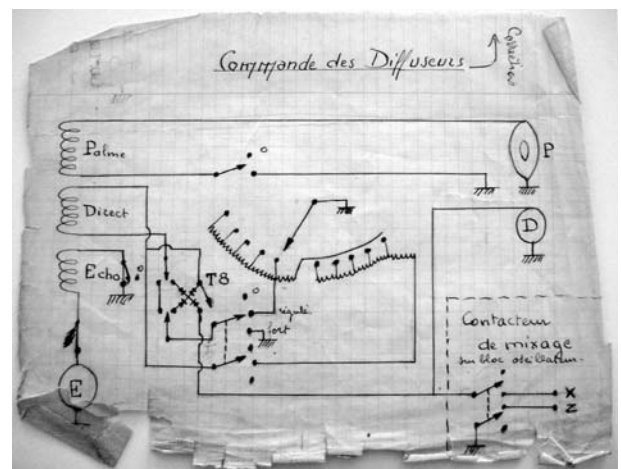 Commande des Diffuseurs
Correction
Palme
o
P
Direct
D
Echo
o
T8
o
régulé
fort
E
Contacteur
de mixage
sur bloc oscillateur.
X
Z